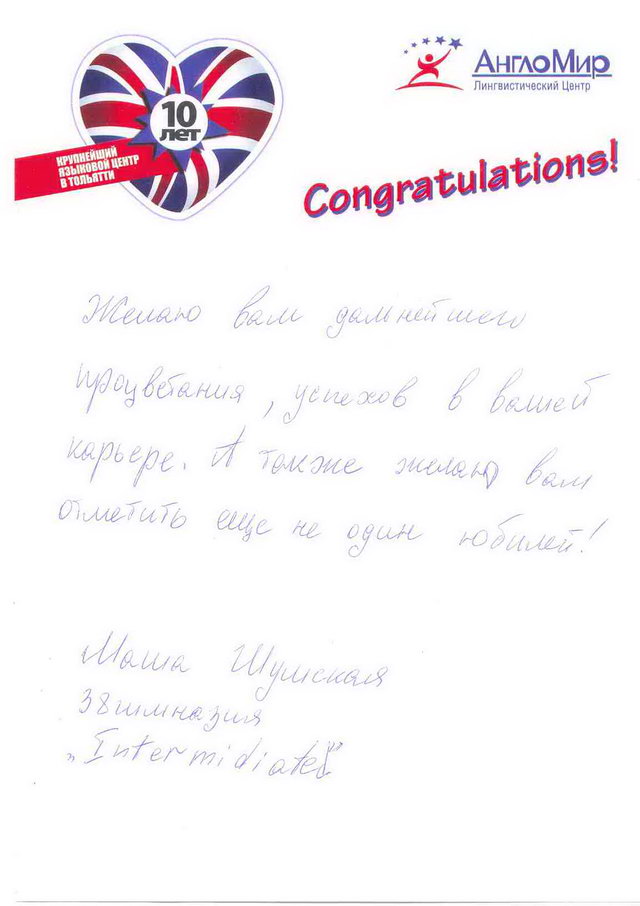 10
лет
КРУПНЕЙШИЙ
ЯЗЫКОВОЙ ЦЕНТР
В ТОЛЬЯТТИ
АнглоМир
Лингвистический Центр
Congratulations!
Желаю вам дальнейшего
процветания, успехов в вашей
карьере. А также желаю вам
отметить еще не один юбилей!
Маша Шумская
38 гимназия
„Intermidiate”